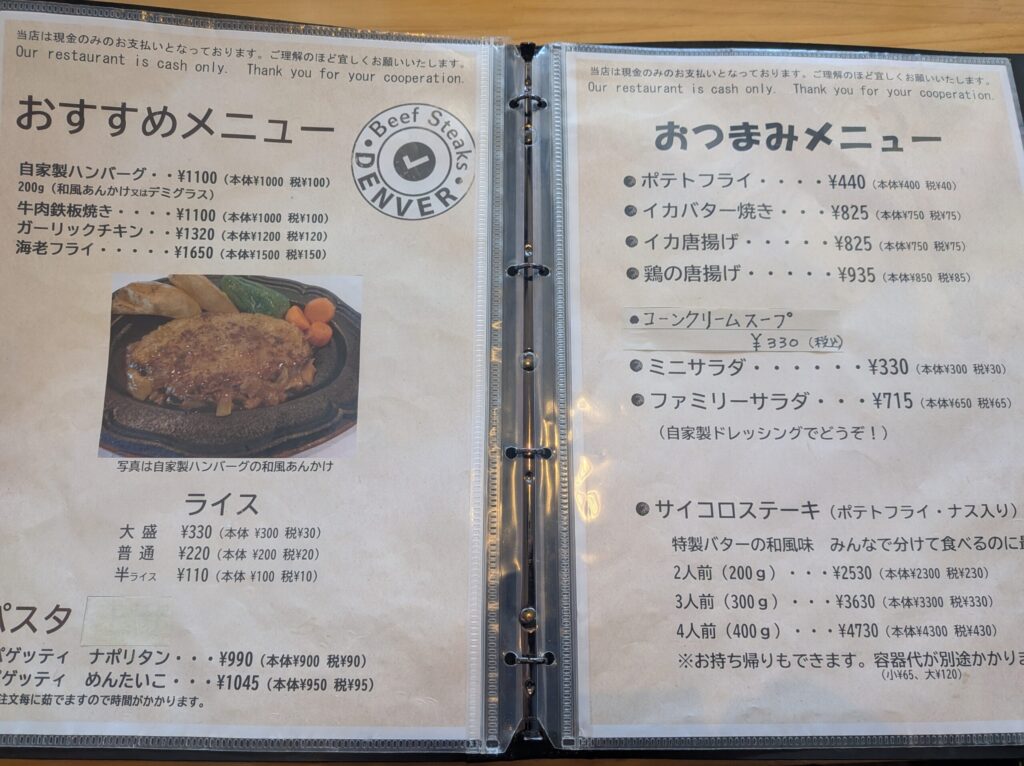 当店は現金のみのお支払いとなっております。ご理解のほど宜しくお願いいたします。
Our restaurant is cash only. Thank you for your cooperation.
おすすめメニュー
Beef Steaks
DENVER
自家製ハンバーグ・・¥1100（本体¥1000 税¥100）
200g（和風あんかけ又はデミグラス）
牛肉鉄板焼き・・・・¥1100（本体¥1000 税¥100）
ガーリックチキン・・¥1320（本体¥1200 税¥120）
海老フライ・・・・・¥1650（本体¥1500 税¥150）
写真は自家製ハンバーグの和風あんかけ
ライス
大 盛 ¥330（本体 ¥300 税¥30）
普 通 ¥220（本体 ¥200 税¥20）
半ライス ¥110（本体 ¥100 税¥10）
パスタ
パゲッティ ナポリタン・・・¥990（本体¥900 税¥90）
パゲッティ めんたいこ・・・¥1045（本体¥950 税¥95）
注文毎に茹でますので時間がかかります。
当店は現金のみのお支払いとなっております。ご理解のほど宜しくお願いいたします。
Our restaurant is cash only. Thank you for your cooperation.
おつまみメニュー
●ポテトフライ・・・・¥440（本体¥400 税¥40）
●イカバター焼き・・・¥825（本体¥750 税¥75）
●イカ唐揚げ・・・・・¥825（本体¥750 税¥75）
●鶏の唐揚げ・・・・・¥935（本体¥850 税¥85）
●コーンクリームスープ
¥330（税込）
●ミニサラダ・・・・・・¥330（本体¥300 税¥30）
●ファミリーサラダ・・・¥715（本体¥650 税¥65）
（自家製ドレッシングでどうぞ！）
●サイコロステーキ（ポテトフライ・ナス入り）
特製バターの和風味 みんなで分けて食べるのに
2人前（200ｇ）・・・¥2530（本体¥2300 税¥230）
3人前（300ｇ）・・・¥3630（本体¥3300 税¥330）
4人前（400ｇ）・・・¥4730（本体¥4300 税¥430）
※お持ち帰りもできます。容器代が別途かかりま
（小¥65、大¥120）